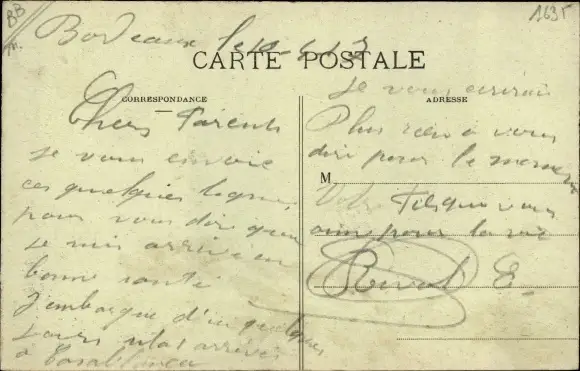 BB
m.
1635
Bordeaux le 10-4-13
CARTE POSTALE
CORRESPONDANCE
ADRESSE
Chers Parents
je vous envoie
ces quelques lignes
pour vous dire que
je suis arrivé en
bonne santé
J'embarque d'ici quelques
jours
à Casablanca
je vous écrirai
Plus rien à vous
dire pour le moment
M
Votre Fils que vous
aime pour la vie
E.